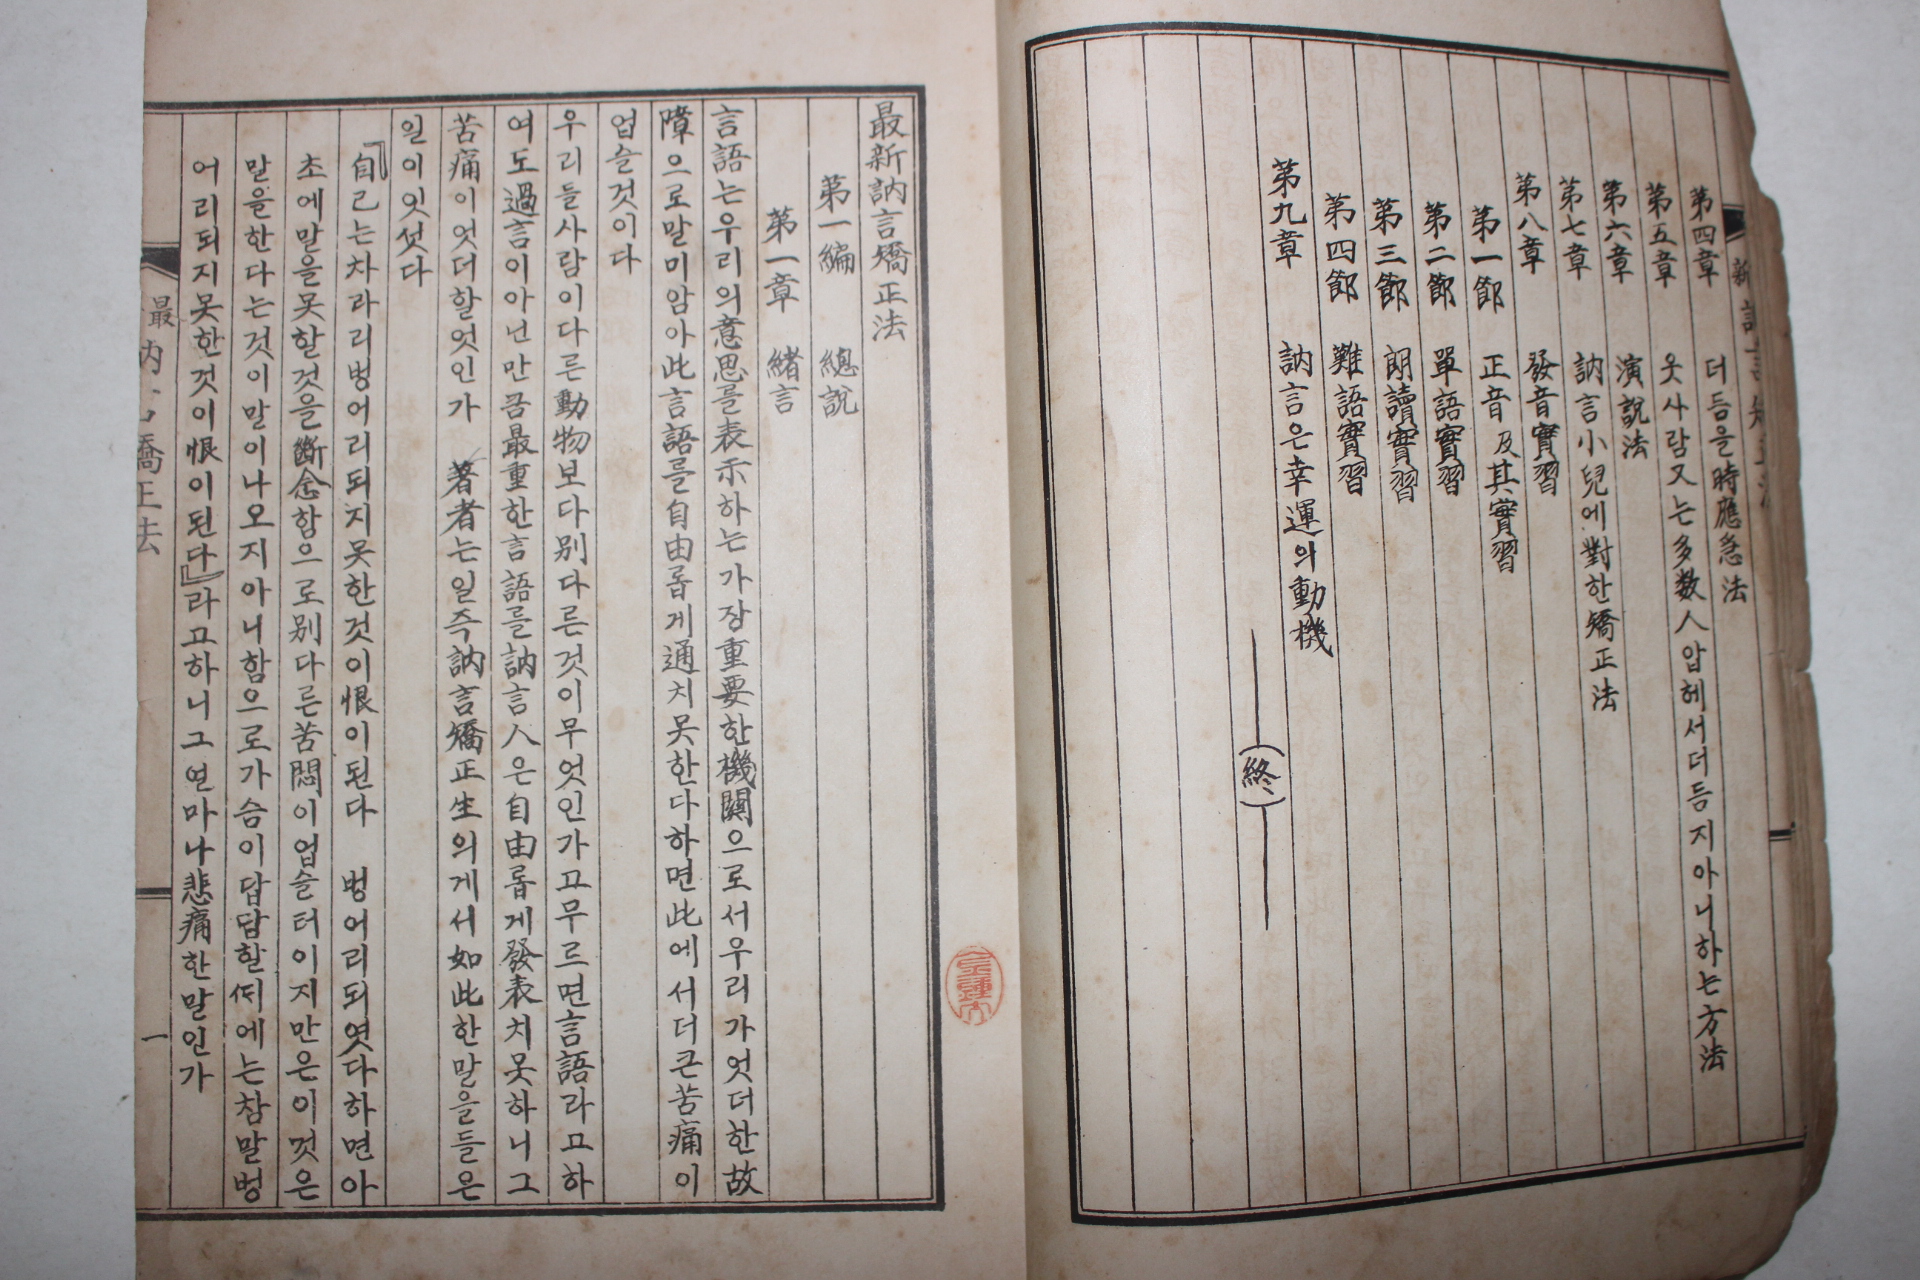 第四章 더듬을時應急法
第五章 웃사람又는多数人압헤서더듬지아니하는方法
第六章 演說法
第七章 訥言小兒에對한矯正法
第八章 發音實習
第一節 正音及其實習
第二節 單語實習
第三節 朗讀實習
第四節 難語實習
第九章 訥言은幸運의動機
(終)
最新訥言矯正法
第一編 總說
第一章 緖言
言語는우리의意思를表示하는가장重要한機關으로서우리가엇더한故
障으로말미암아此言語를自由롭게通치못한다하면此에서더큰苦痛이
업슬것이다
우리들사람이다른動物보다別다른것이무엇인가고무르면言語라고하
여도過言이아닌만콤最重한言語를訥言人은自由롭게發表치못하니그
苦痛이엇더할엇인가 著者는일즉訥言矯正生의게서如此한말을들은
일이잇섯다
「自己는차라리벙어리되지못한것이恨이된다 벙어리되엿다하면아
초에말을못할것을斷念함으로別다른苦悶이업슬터이지만은이것은
말을한다는것이말이나오지아니함으로가슴이답답할ᄯᅢ에는참말벙
어리되지못한것이恨이된다」라고하니그언마나悲痛한말인가
一